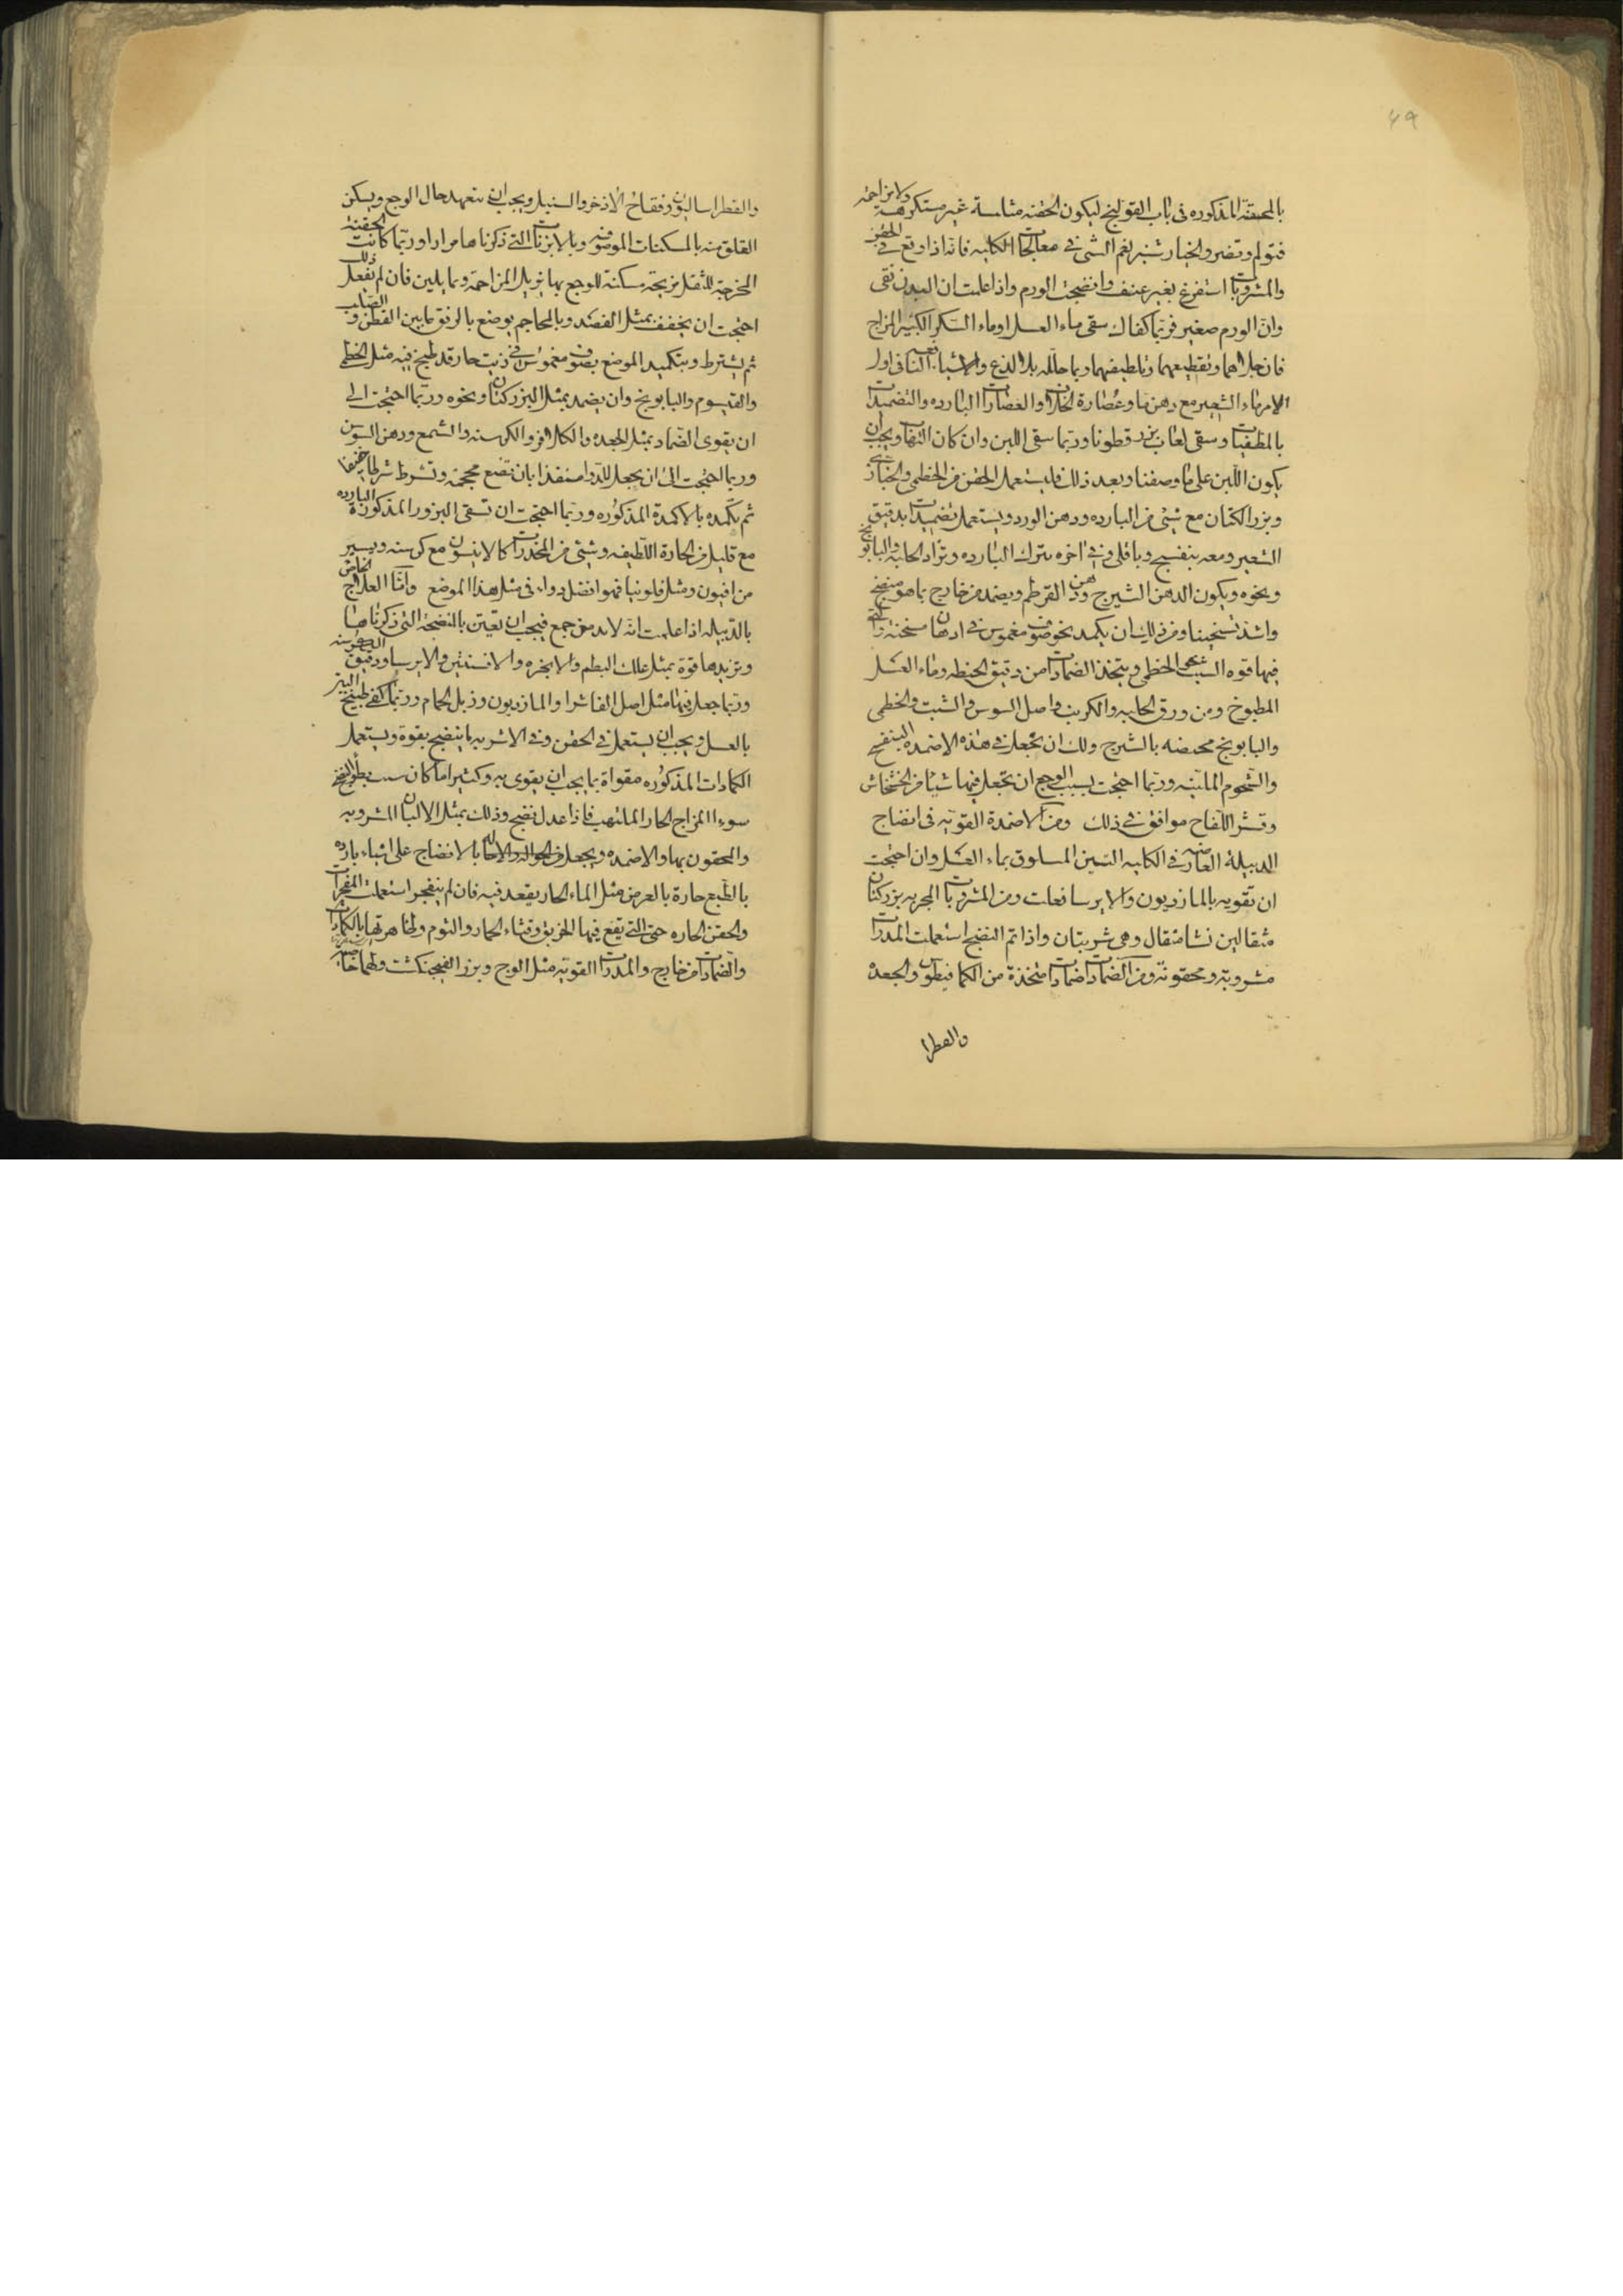 ٤٩
بالمحقنة المذكوره فى باب القولنج ليكون الحقنه مثامسة غير مستكرهة ولا مزاحمة
فتولم وتضر والخيار شنبر نعم الشى فى معالجات الكليه فانه اذا وقع فى الحقن
والمشروبات استفرغ بغير عنف وانضجت الورم واذا علمت ان البدن نقى
وان الورم صغير فربما كفاك سقى ماء العسل او ماء السكر الكثير المزاج
فان جلاهما وتقطيعهما وتلطيفهما ربما حلله بلا لذع والاشياء النافعه فى اول
الامر ماء الشعير مع دهن ما وعصارة الخلاف والعصارات البارده والتضميدات
بالمطفيات وسقى لعاب بزر قطونا وربما سقى اللبن وان كان التهاب ويجب ان
يكون اللبن على ما وصفنا وبعد ذلك فليستعمل الحقن من الخطمى والخبازى
وبزر الكتان مع شئ من البارده ودهن الورد ويستعمل تضميدات بدقيق
الشعير ومعه بنفسج وباقلى وفى اخره يترك البارده وتزاد الحلبه والبابونج
ونحوه ويكون الدهن الشيرج ودهن القرطم ويضمد من خارج بما هو منضج
واشد تسخينا ومن ذلك ان يكمد بخو صوف مغموس فى ادهان مسخنة واقع
فيها قوه الشبث الخطمى ويتخذ الضمادات من دقيق الحنطه وماء العسل
المطبوخ ومن ورق الحلبه والكرنب واصل السوس والشبث والخطمى
والبابونج محمصه بالشيرج ولك ان تجعل فى هذه الاضمده البنفسج
والشحوم الملينه وربما احتجت بسبب الوجع ان تجعل فيها شيئا من الخشخاش
وقشر اللفاح موافق فى ذلك ومن الاضمدة القويه فى انضاج
الدبيلة العارضه فى الكليه التين المسلوق بماء العسل وان احتجت
ان تقويه بالمازريون والايرسا فعلت ومن المشروبات المجربه بزر كتان
مثقالين نشا مثقال وهى شربتان واذا تم النضج استعملت المدرات
مشروبة ومحقونة ومن الضمادات ضمادات متخذة من الكمافيطوس والجعده
والفطرا
والفطراساليون وفقاح الاذخر والسنبل ويجب ان يتعهد حال الوجع ويسكن
القلق منه بالمسكنات الموصوفه وبالابزنات التى ذكرناها مرارا وربما كانت الحقنة
المخرجة للثقل مريحة مسكنة للوجع بما تزيل المزاحمة وبما يلين فان لم يفعل ذلك
احتجت ان يخفف بمثل الفصد وبالمحاجم يوضع بالرفق ما بين القطن والصلب
ثم يشترط وبتكميد الموضع بصوف مغموس فى زيت حار قد طبخ فيه مثل الخطمى
والقيسوم والبابونج وان يضمد بمثل البزر كتان ونحوه وربما احتجت الى
ان يقوى الضماد بمثل الجعده والكمافيطوس والكرسنه والشمع ودهن السوسن
وربما احتجت الى ان يجعل للدوا منفذا بان تضع محجمة وتشرط شرطا خفيفا
ثم تكمده بالاكمدة المذكوره وربما احتجت ان تسقى البزور المذكورة البارده
مع قليل من الحارة اللطيفه وشئ من المخدرات كالانيسون مع كرسنه ويسير
من افيون ومثل فلونيا فهو افضل دواء فى مثل هذا الموضع واما العلاج الخاص
بالدبيله اذا علمت انه لابد من جمع فيجب ان تعين بالنضجة التى ذكرناها
وتزيدها قوة بمثل علك البطم والانجره والافسنتين والايرسا ودقيق الكرسنه
وربما جعل فيها مثل اصل الفاشرا والمازريون وذبل الحمام وربما كفى طبيخ التين
بالعسل ويجب ان يستعمل فى الحقن وفى الاشربه ما ينضج بقوة ويستعمل
الكمادات المذكوره مقواة بما يجب ان يقوى به وكثيرا ما كان سبب بطو النضج
سوء المزاج الحار الملتهب فاذا عدل نضج وذلك بمثل الالبان المشروبه
والمحقون بها والاضمده ويجعل بالانضاج على اشياء بارده
بالطبع حارة بالعرض مثل الماء الحار يقعد فيه فان لم ينفجر استعملت المفجرات
والحقن الحاره حتى التى يقع فيها الخربق وقثاء الحمار والثوم بالكمادات
والضمادات من خارج والمدرات القويه مثل الوج وبزر الفنجنكشت ولهما خاصيه